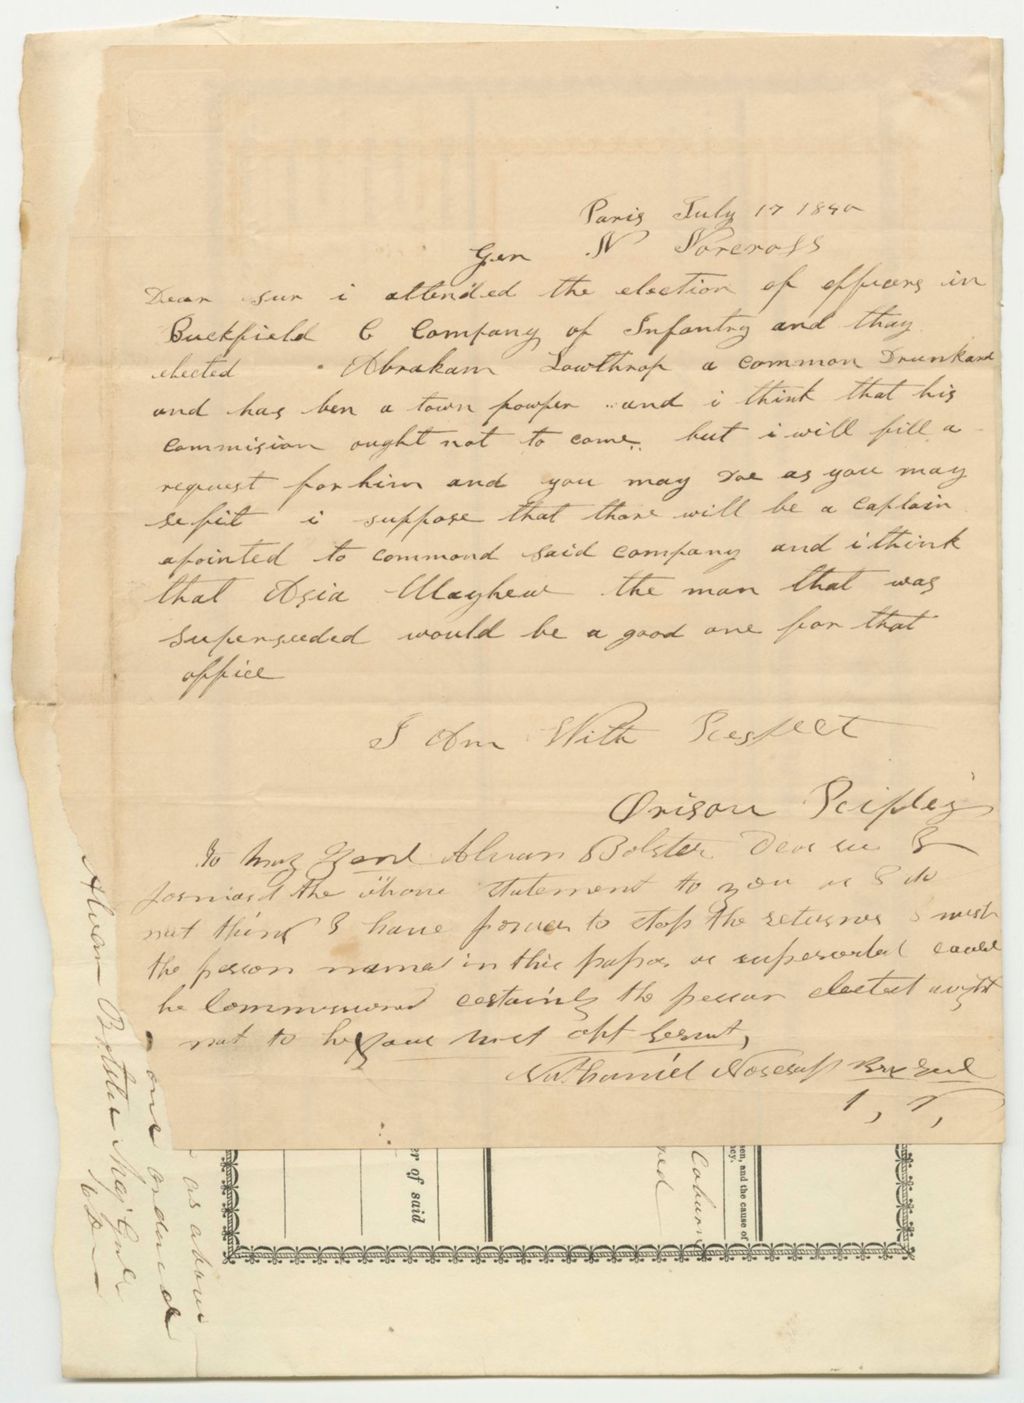 Paris July 17 1840
Gen N Norcross
Dear sur i attended the election of officers in
Buckfield C Company of Infantry and thay
elected Abraham Lowthrop a common Drunkard
and has ben a town powper and i think that his
commision ought not to come but i will fill a
request for him and you may doe as you may
se fit i suppose that thare will be a captain
apointed to command said company and i think
that Asia Mayhew the man that was
superseeded would be a good one for that
office
I Am With Respect
Orison Ripley
To Maj Genl Alvan Bolster Dear sir I
forward the above statement to you as I do
not think I have power to stop the returns I wish
the person named in this paper as superseeded could
be Commissioned certainly the person elected ought
not to be your most obt servt,
Nathaniel Norcross Brg Genl
1,
er of said
Coburn
ned
en, and the cause of
cy.
as above
one ordered
Alvan Bolster Maj Genl